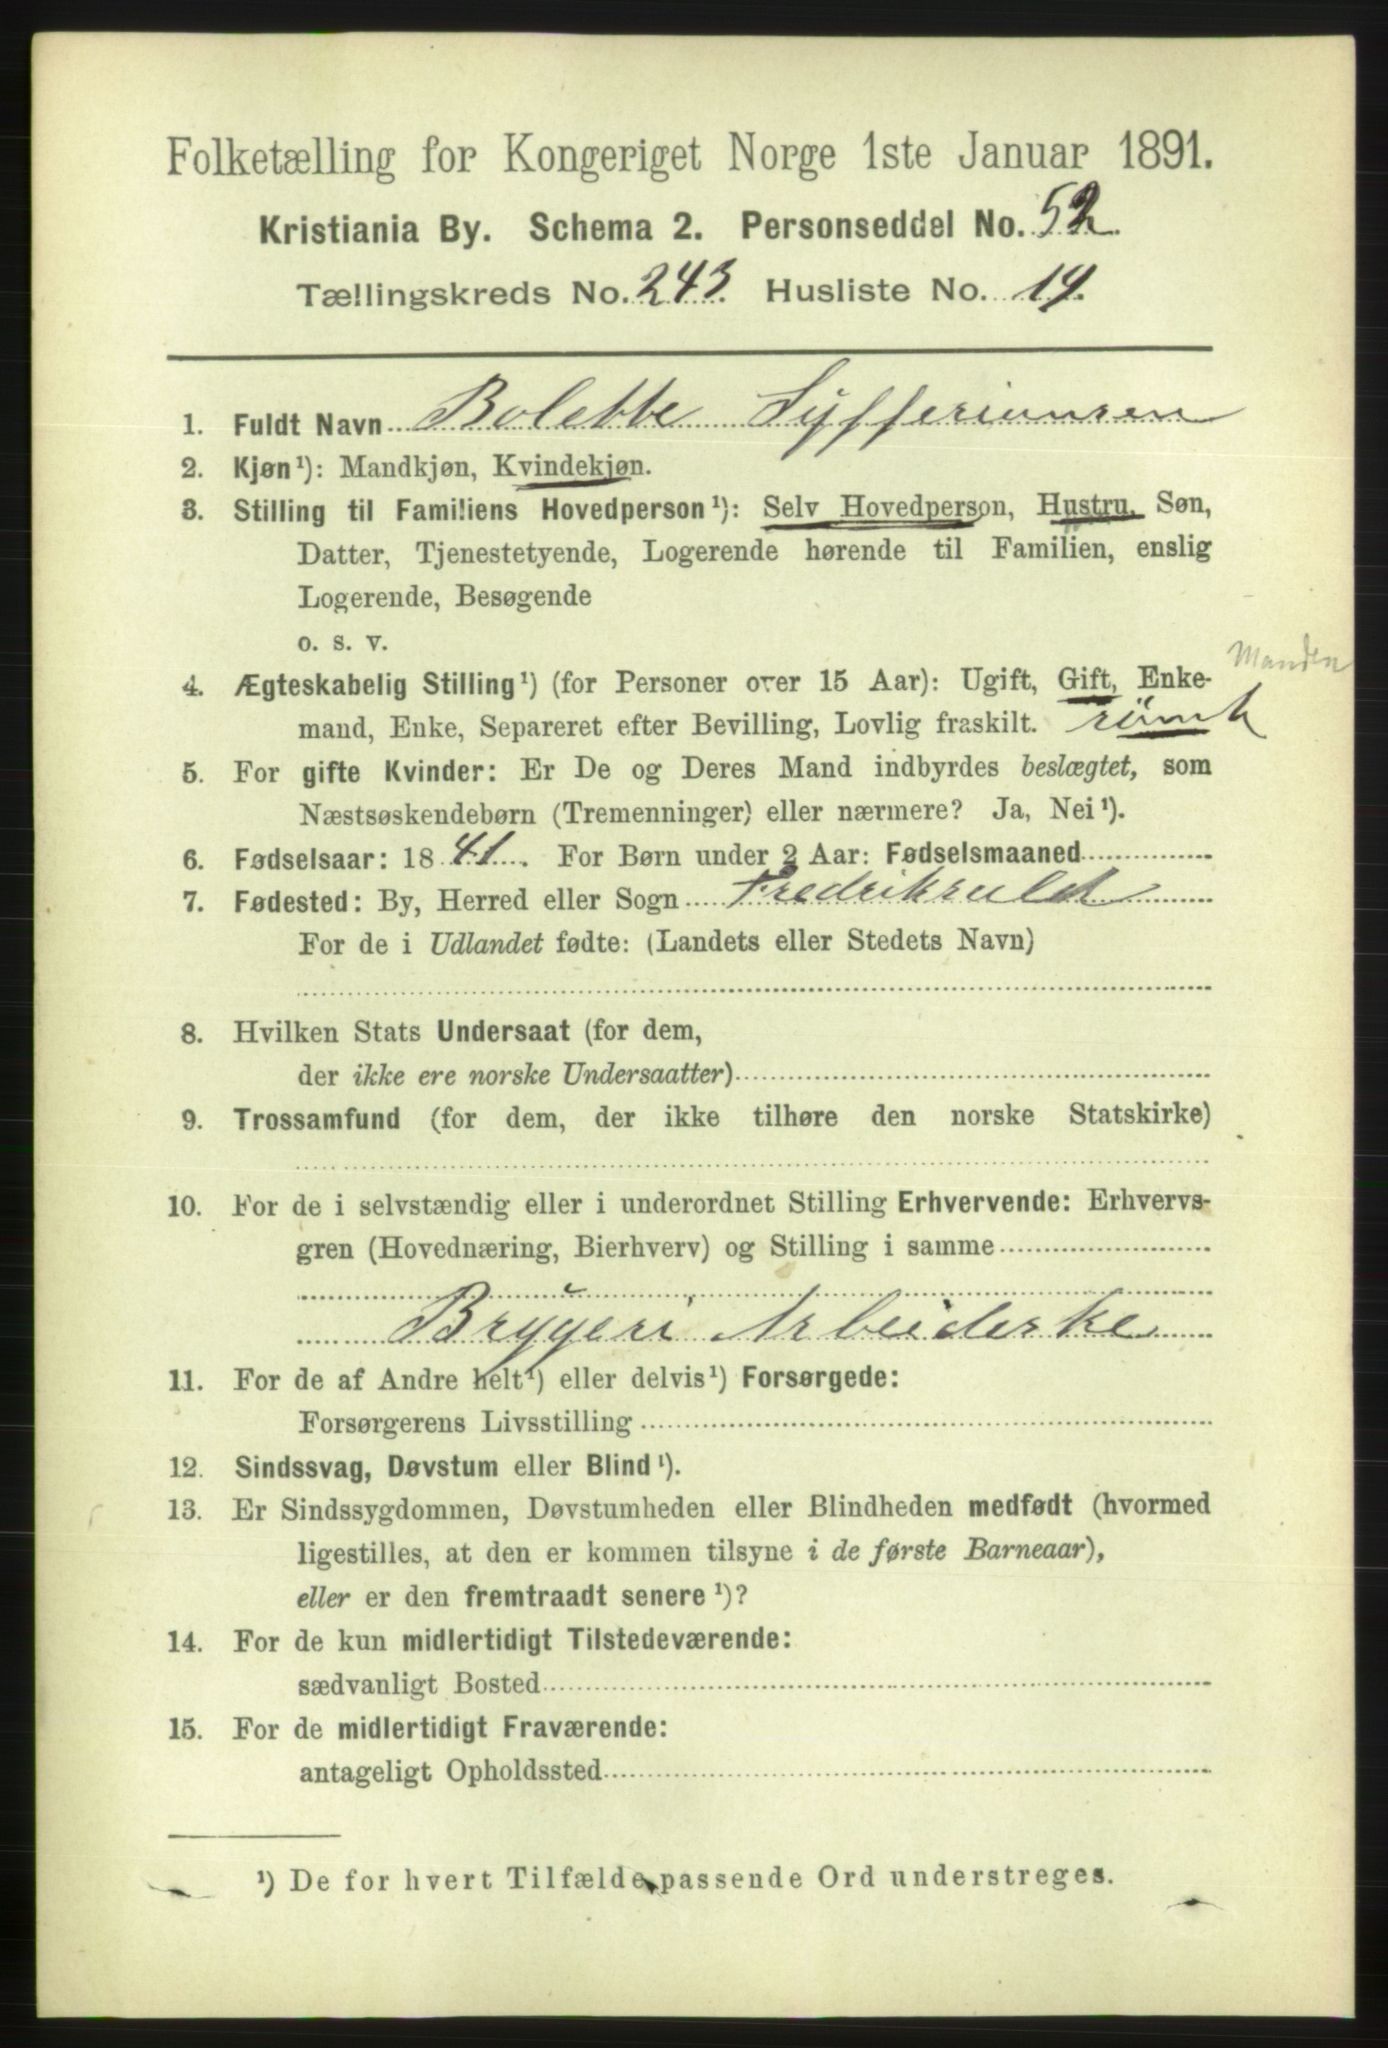 Folketælling for Kongeriget Norge 1ste Januar 1891.
Kristiania By. Schema 2. Personseddel No. 52.
Tællingskreds No. 243. Husliste No. 14.
1. Fuldt Navn Bolette Syfferiunsen
2. Kjøn¹): Mandkjøn, Kvindekjøn.
3. Stilling til Familiens Hovedperson¹): Selv Hovedperson, Hustru, Søn,
Datter, Tjenestetyende, Logerende hørende til Familien, enslig
Logerende, Besøgende
o. s. v.
Manden
4. Ægteskabelig Stilling¹) (for Personer over 15 Aar): Ugift, Gift, Enke-
mand, Enke, Separeret efter Bevilling, Lovlig fraskilt. rømt
5. For gifte Kvinder: Er De og Deres Mand indbyrdes beslægtet, som
Næstsøskendebørn (Tremenninger) eller nærmere? Ja, Nei¹).
6. Fødselsaar: 1841. For Børn under 2 Aar: Fødselsmaaned
7. Fødested: By, Herred eller Sogn Fredriksald
For de i Udlandet fødte: (Landets eller Stedets Navn)
8. Hvilken Stats Undersaat (for dem,
der ikke ere norske Undersaatter)
9. Trossamfund (for dem, der ikke tilhøre den norske Statskirke)
10. For de i selvstændig eller i underordnet Stilling Erhvervende: Erhvervs-
gren (Hovednæring, Bierhverv) og Stilling i samme
Bryggeri Arbeiderske
11. For de af Andre helt¹) eller delvis¹) Forsørgede:
Forsørgerens Livsstilling
12. Sindssvag, Døvstum eller Blind¹).
13. Er Sindssygdommen, Døvstumheden eller Blindheden medfødt (hvormed
ligestilles, at den er kommen tilsyne i de første Barneaar),
eller er den fremtraadt senere¹)?
14. For de kun midlertidigt Tilstedeværende:
sædvanligt Bosted
15. For de midlertidigt Fraværende:
antageligt Opholdssted
¹) De for hvert Tilfælde passende Ord understreges.